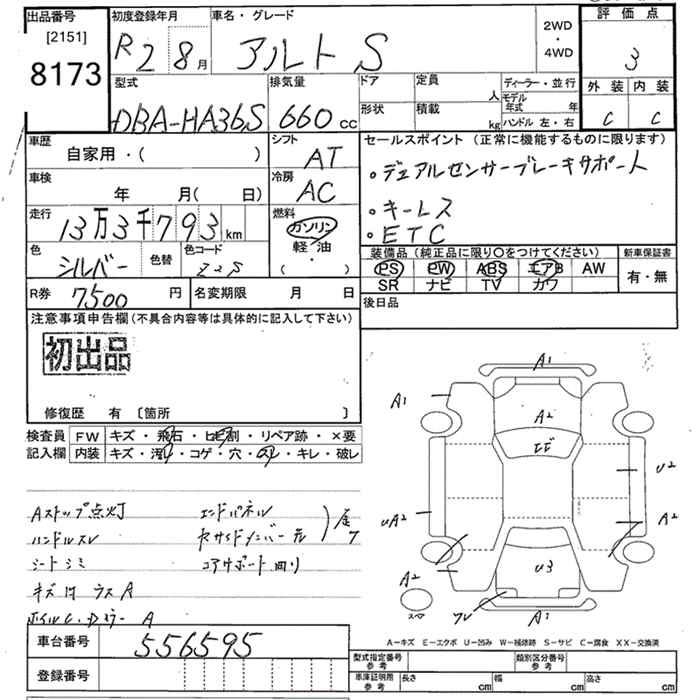 出品番号 初度登録年月 車名・グレード 2WD・4WD 評価点
[2151]
8173
R2 8月 アルト S 3
型式 排気量 ドア 定員 人 ディーラー・並行
外装 内装
モデル年式 年
DBA-HA36S 660cc 形状 積載 kg ハンドル 左・右 C C
車歴 シフト セールスポイント(正常に機能するものに限ります)
自家用・( ) AT
・デュアルセンサーブレーキサポート
車検 冷房
年 月(日) AC
・キーレス
走行 燃料
13万3千793km ガソリン
・ETC
軽油
・( )
色 色替 色コード 装備品(純正品に限り○をつけてください) 新車保証書
シルバー Z2S
PS PW ABS エアB AW 有・無
SR ナビ TV カワ
R券 7,500円 名変期限 月 日
後日品
注意事項申告欄(不具合内容等は具体的に記入して下さい)
初出品
修復歴 有 〔箇所 〕
検査員 FW キズ・飛石・ヒビ割・リペア跡・×要
記入欄 内装 キズ・汚れ・コゲ・穴・スレ・キレ・破レ
Aストップ点灯 エンドパネル
ハンドルスレ
シートシミ コアサポート
キズ
A
A1
A1
A2
エビ
U2
UA2
A2
U3
A2
A1
A-キズ E-エクボ U-凹み W-補修跡 S-サビ C-腐食 XX-交換済
車台番号 556595
型式指定番号 参考 類別区分番号 参考
登録番号
車庫証明用 参考 長さ cm 幅 cm 高さ cm